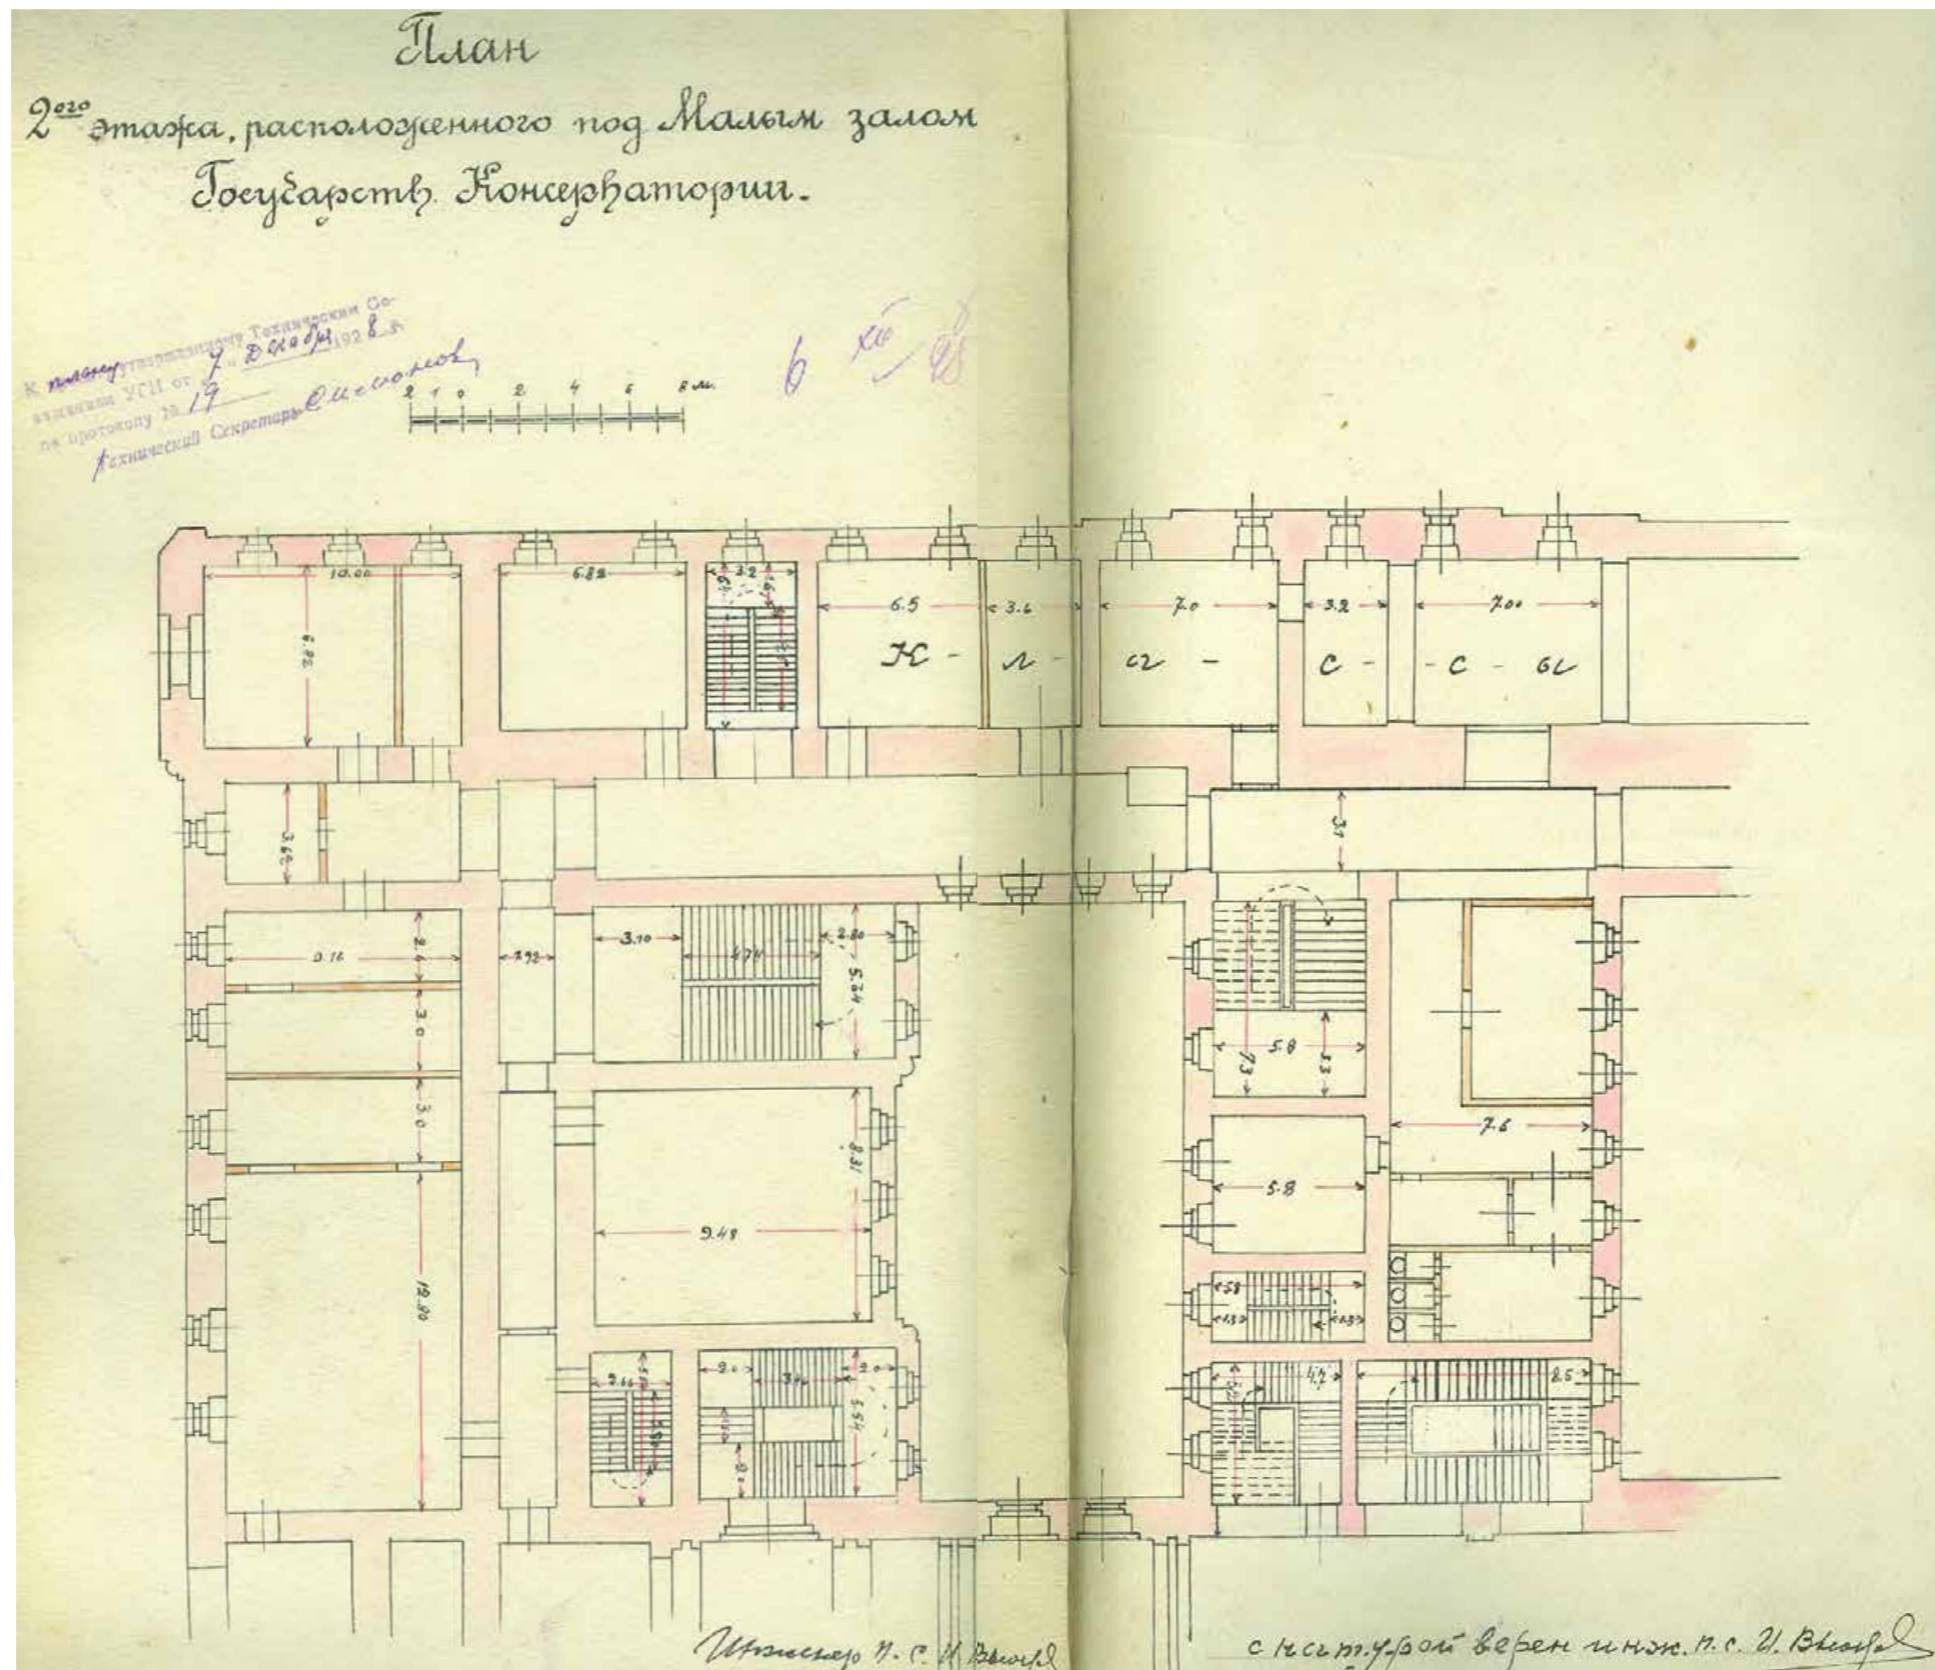 План
2ого этажа, расположенного под Малым залом
Государств. Консерватории.
К плану утвержденному Техническим Со-
вещанием УГИ от 7 " Декабря 1928 г.
по протоколу № 19
Технический Секретарь Симонов
2 1 0 2 4 6 8 м.
6 XII 28
10.00 6.82 3.2 6.5 3.6 7.0 3.2 7.00
6.82
К - Л - а - с - - с - ы
3.62 3.1
9.16 2.64 1.92 3.10 4.74 2.80 5.24
3.0 5.8 7.3 3.3
3.0 8.31 7.6
9.48 5.8
12.80 5.8
1.3 1.3
2.0 2.0 4.7 8.5
5.54
2.0
Инженер П. С. И.
с натурой верен инж. п. с. И.